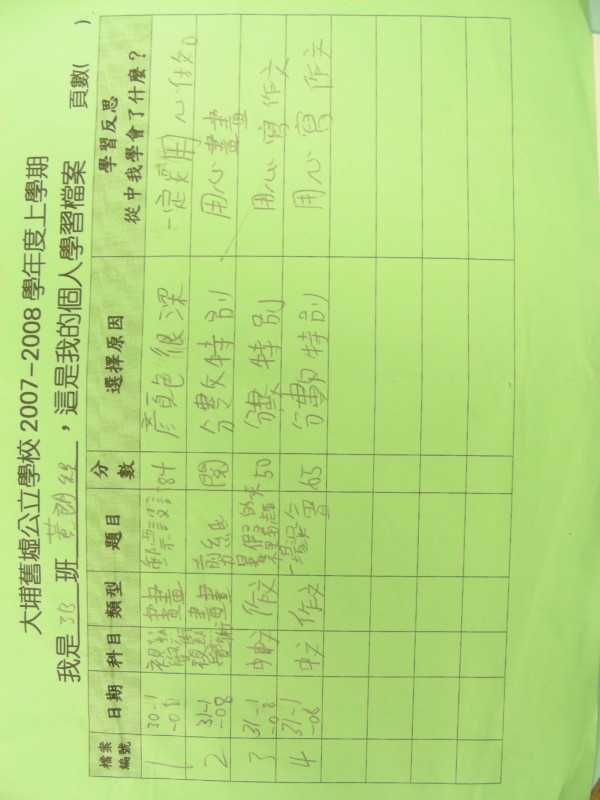 大埔舊墟公立學校 2007-2008 學年度上學期
我是 3B 班 黃 ，這是我的個人學習檔案 頁數( )
檔案編號 日期 科目 類型 題目 分數 選擇原因 學習反思 從中我學會了什麼？
1 30-1-08 視覺 畫畫 郵票設計 84 彥頁色很深 一定要用心做
2 31-1-08 視覺 畫畫 剪紙 閱 分數特別 用心畫畫
3 31-1-08 中文 作文 暑假的 50 分數特別 用心寫作文
4 31-1-08 中文 作文 一場 音 65 分數特別 用心寫作文